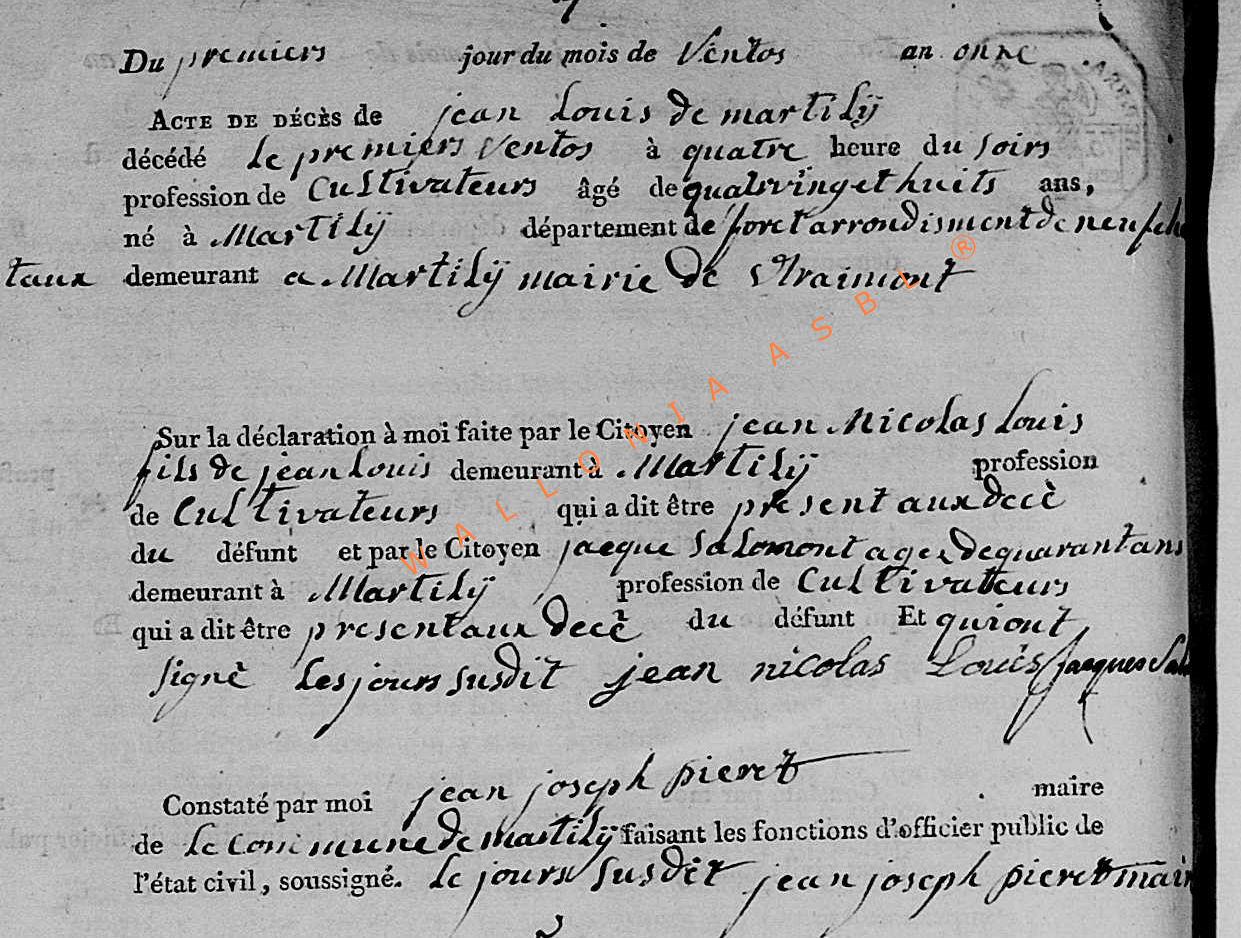 Du premiers jour du mois de Ventos an onne
ACTE DE DÉCÈS de jean Louis de martilÿ
décédé le premiers Ventos à quatre heure du soirs
profession de Cultivateurs âgé de quatrevingethuits ans,
né à Martilÿ département de foret arrondisment de neufcha
taux demeurant a Martilÿ mairie de Straimont
Sur la déclaration à moi faite par le Citoyen jean Nicolas Louis
fils de jean Louis demeurant à Martilÿ profession
de Cultivateurs qui a dit être present aux decè
du défunt et par le Citoyen jacque Salomont agee de quarant ans
demeurant à Martilÿ profession de Cultivateurs
qui a dit être present aux decè du défunt Et qui ont
signè les jours susdit jean nicolas Louis jacques Sal
Constaté par moi jean joseph pieret maire
de le Commune de martilÿ faisant les fonctions d'officier public de
l'état civil, soussigné. le jours susdit jean joseph pieret mair
WALLONIA ASBL ®